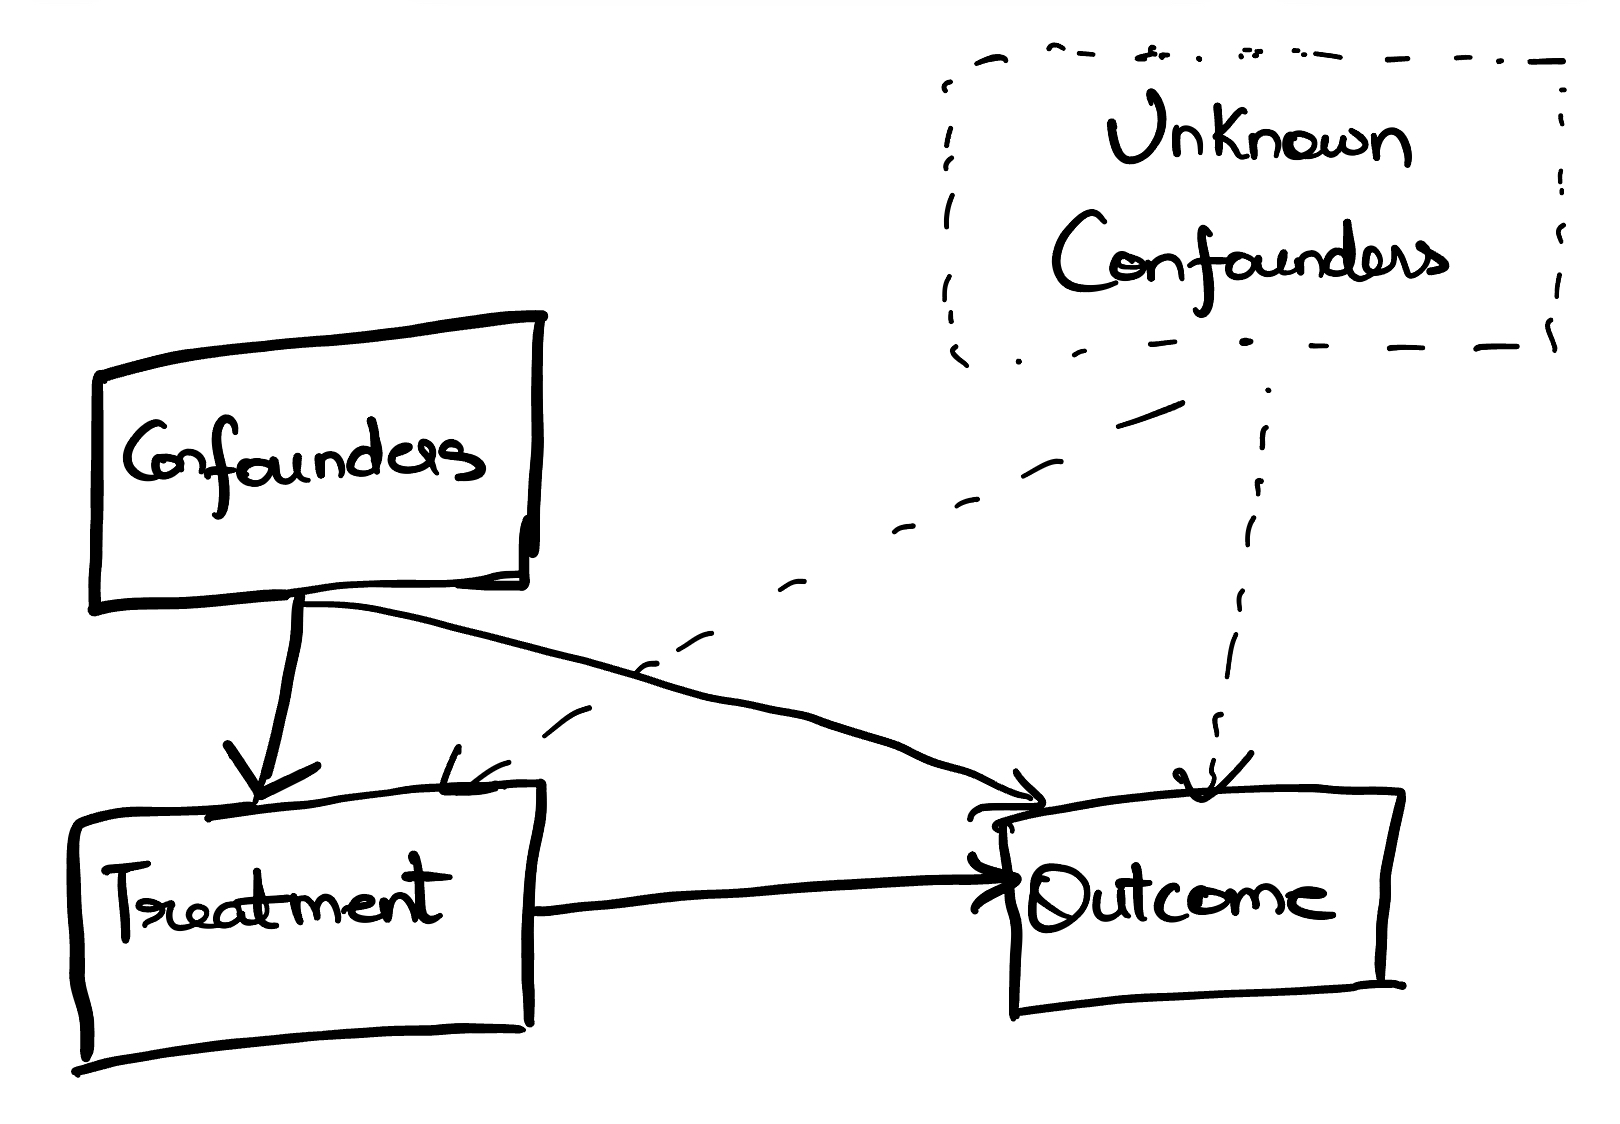 Unknown
Confounders
Confounders
Treatment
Outcome